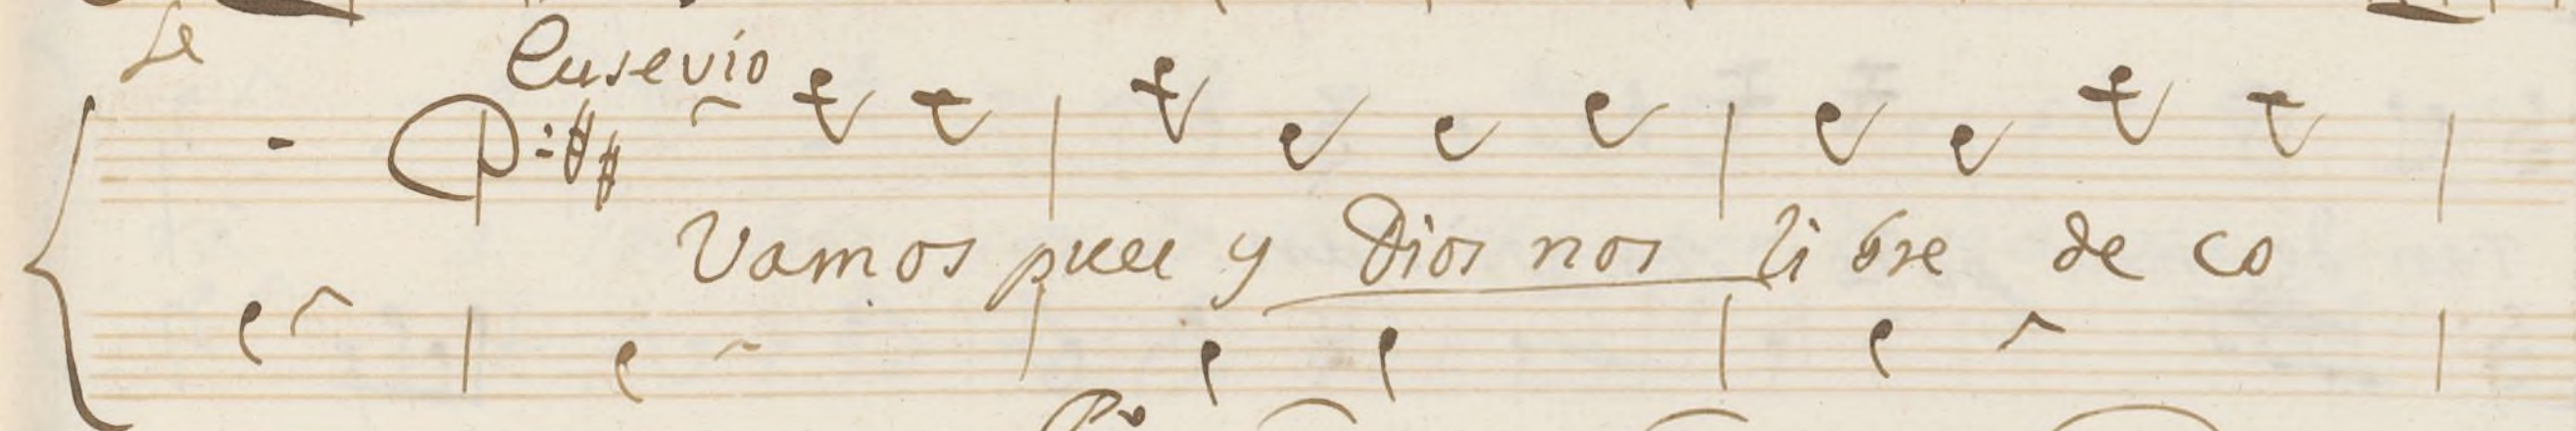 Le
Eusevio
Vamos pues y Dios nos li bre de co
Po